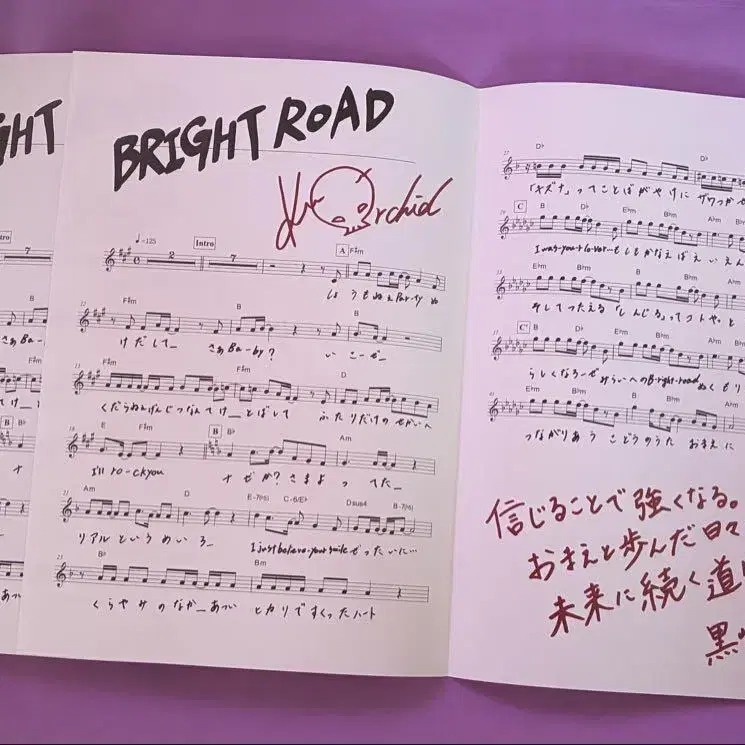 GHT
7
さぁBa-by?
F♯m
B
B♭
BRIGHT ROAD
Orchid
♩=125
Intro
2
7
A F♯m
しょうもねぇPar-ty ぬ
12
F♯m B
けだして_ さぁBa-by? い こーぜ_
15
F♯m D
くだらねんげんじつなんてけ_とばして ふたりだけのせかいへ
18
E F♯m B B♭ Am
I'll ro-ckyou ナゼか?さまよってた_
21
Am D E-7(♭5) C-6/E♭ Dsus4 B-7(♭5)
リアルというめいろ_ I just believe-your smile ぜったいに…
25
B♭ Bm
くらやみのなか_あつい ヒカリですくったハート
27
D♭ D♭
「キズナ」ってことばがやけに ザワつかせ
C B D♭ E♭m B♭m E♭m B♭m A♭m
I was-your-lover-もしもかなえばえいえん
E♭m B♭m E♭m B♭m B A♭m
そしてつたえる「しんじる」ってコトやっと
C' B D♭ E♭m B♭m
らしくなろーぜみらいへのB-right-road ぬくもり
E♭m B♭m E♭m B♭m B A♭m
つながりあう こどうのうた おまえに
信じることで強くなる。
おまえと歩んだ日々
未来に続く道
黒